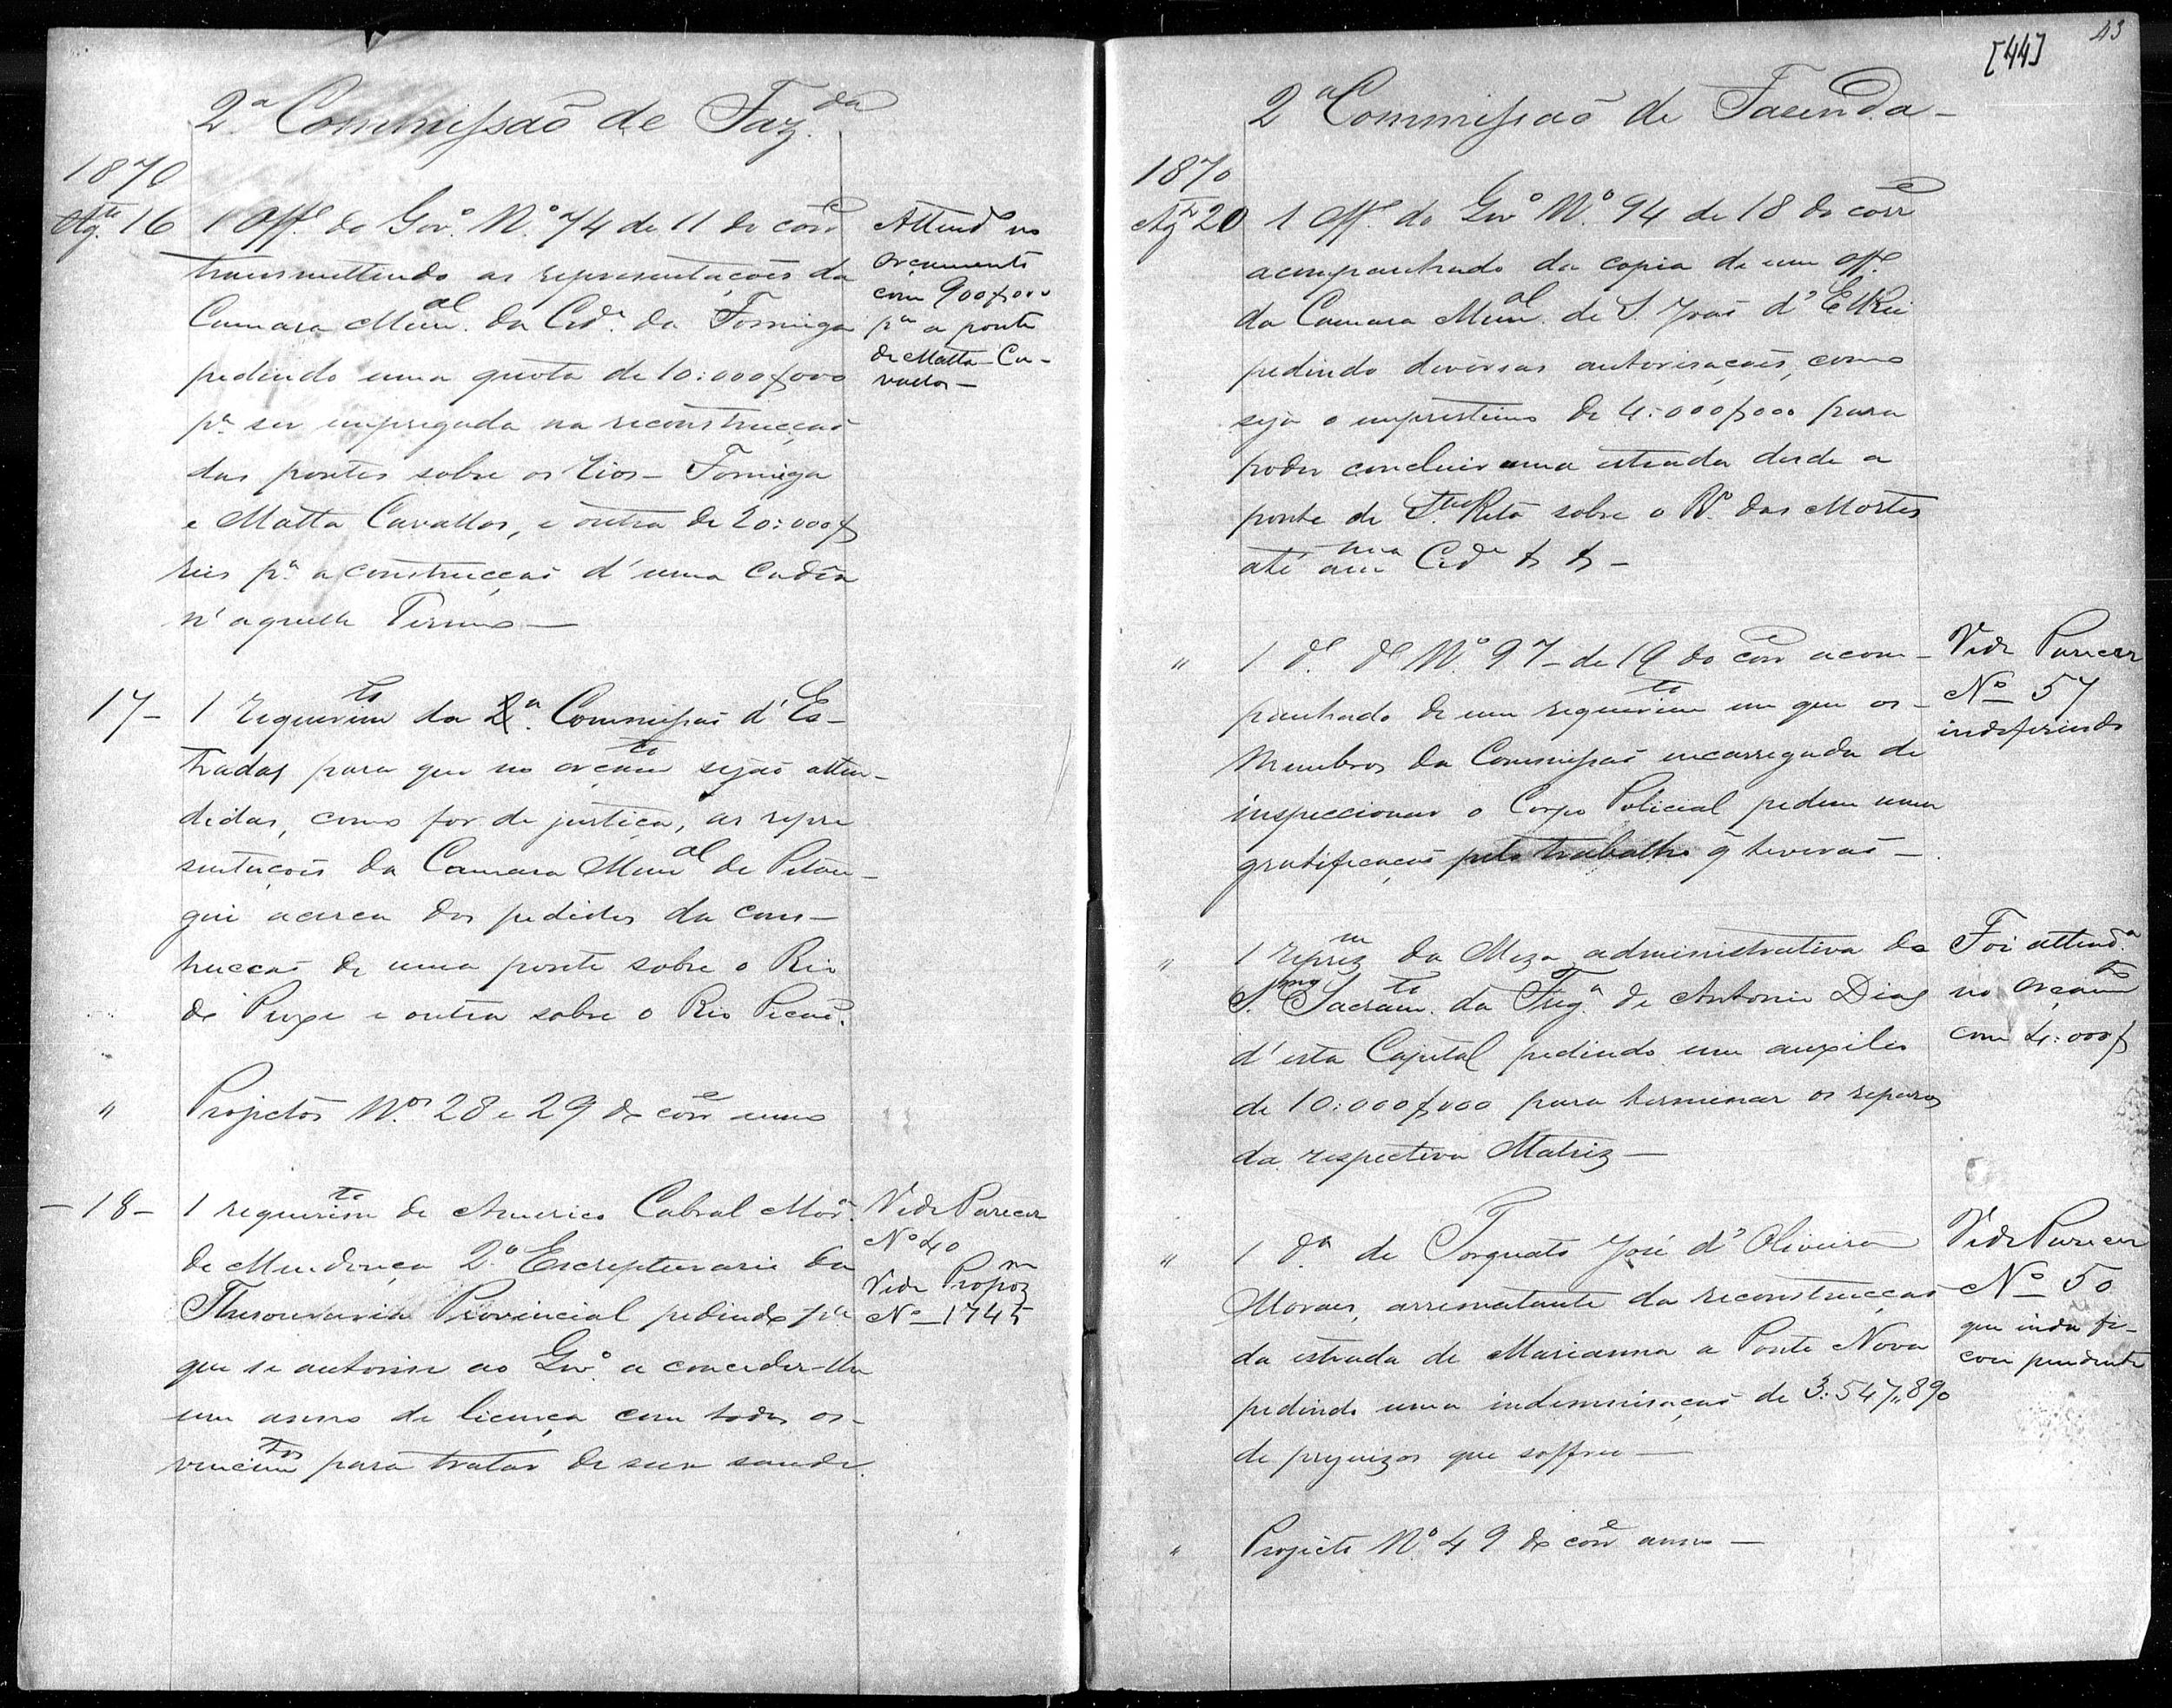 2.ª Commissão de Faz.da
1870
Ag.to 16
1 Off.º do Gov.º N.º 74 de 11 do corr.e
transmittendo as representações da
Camara Mun.al da Cid.e da Formiga
pedindo uma quota de 10:000$000
p.ª ser empregada na reconstrucção
das pontes sobre os rios - Formiga
e Matta Cavallos, e outra de 20:000$
reis p.ª a construcção d'uma Cadêa
n'aquelle Termo —
Attend.º no
Orçamento
com 900$000
p.ª a ponte
de Matta-Ca-
vallos —
17 -
1 requerim.to da 2.ª Commissão d'Es-
tradas para que no orçam.to sejão atten-
didas, como for de justiça, as repre
sentações da Camara Mun.al de Pitan-
gui acerca dos pedidos da cons-
trucção de uma ponte sobre o Rio
de Peixe e outra sobre o Rio Picão.
"
Projectos N.os 28 e 29 do corr.e anno
- 18 -
1 requerim.to de Americo Cabral Mor.a
de Mendonça 2.º Escripturario da
Thesouraria Provincial pedindo p.ª
que se autorise ao Gov.º a conceder-lhe
um anno de licença com todos os-
vencim.tos para tratar de sua saude.
Vide Parecer
Nº 40
Vide Propoz.m
Nº 1745
43
[44]
2.ª Commissão de Fasenda -
1870
Ag.to 20
1 Off.º do Gov.º N.º 94 de 18 do corr.e
acompanhado da copia de um off.º
da Camara Mun.al de S. João d'ElRei
pedindo diversas autorisações, como
seja o emprestimo de 4:000$000 para
poder concluir uma estrada desde a
ponte de S.ta Rita sobre o R.º das Mortes
até a m.ma Cid.e & & -
"
1 d.º d.º N.º 97 - de 19 do corr.e acom-
panhado de um requerim.to em que os -
Membros da Commissão encarregada de
inspeccionar o Corpo Policial pedem uma
gratificação pelo trabalho q̃ tiverão -
Vide Parecer
Nº 57
indeferindo
"
1 reprez.m da Meza administrativa do
S.smo Sacram.to da Freg.ª de Antonio Dias
d'esta Capital pedindo um auxilio
de 10:000$000 para terminar os reparos
da respectiva Matriz —
Foi attend.ª
no Orçam.to
com 4:000$
"
1 d.ª de Torquato José d'Oliveira
Moraes, arrematante da reconstrucção
da estrada de Marianna a Ponte Nova
pedindo uma indemnisação de 3:547,,890
de prejuizos que soffreu —
Vide Parecer
Nº 50
que inda fi-
cou pendente
"
Projecto N.º 49 do corr.e anno —